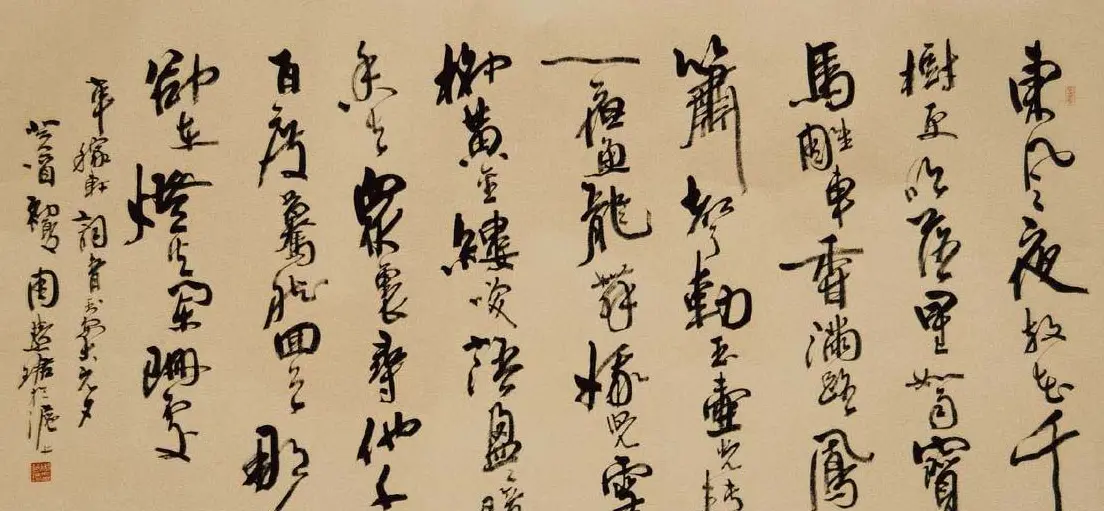 東風夜放花千
樹更吹落星如雨寶
馬雕車香滿路鳳
簫聲動玉壺光轉
一夜魚龍舞蛾兒雪
柳黃金縷笑語盈盈暗
香去衆裏尋他千
百度驀然回首那
卻在燈火闌珊處
辛稼軒詞青玉案元夕
癸酉初夏周慧珺於滬上